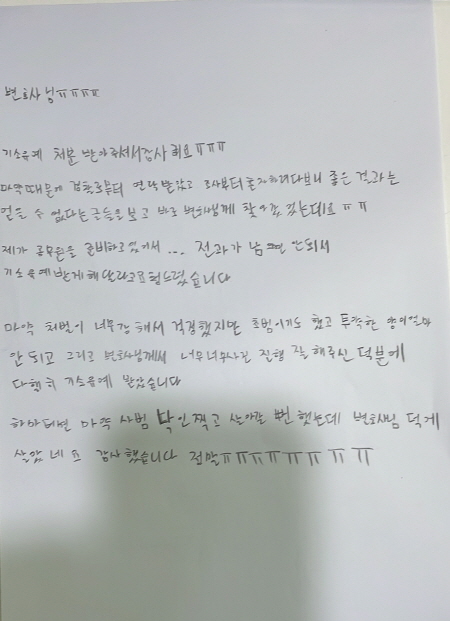 변호사님ㅠㅠㅠㅠ
기소유예 처분 받아주셔서 감사해요ㅠㅠㅠ
마약때문에 검찰로부터 연락받았고 조사부터 받으려다보니 좋은 결과는
얻을 수 없다는 글들을 보고 바로 변호사님께 찾아갔었는데요ㅠㅠ
제가 공무원을 준비하고있어서 ... 전과가 남으면 안되서
기소유예받게 해달라고요청드렸습니다
마약 처벌이 너무강해서 걱정했지만 초범이기도 했고 투약한 양이얼마
안되고 그리고 변호사님께서 너무너무사건 진행 잘해주신 덕분에
다행히 기소유예 받았습니다
하마터면 마약 사범 낙인찍고 살아갈 뻔했는데 변호사님 덕에
살았네요 감사했습니다 정말ㅠㅠㅠㅠㅠㅠㅠㅠ